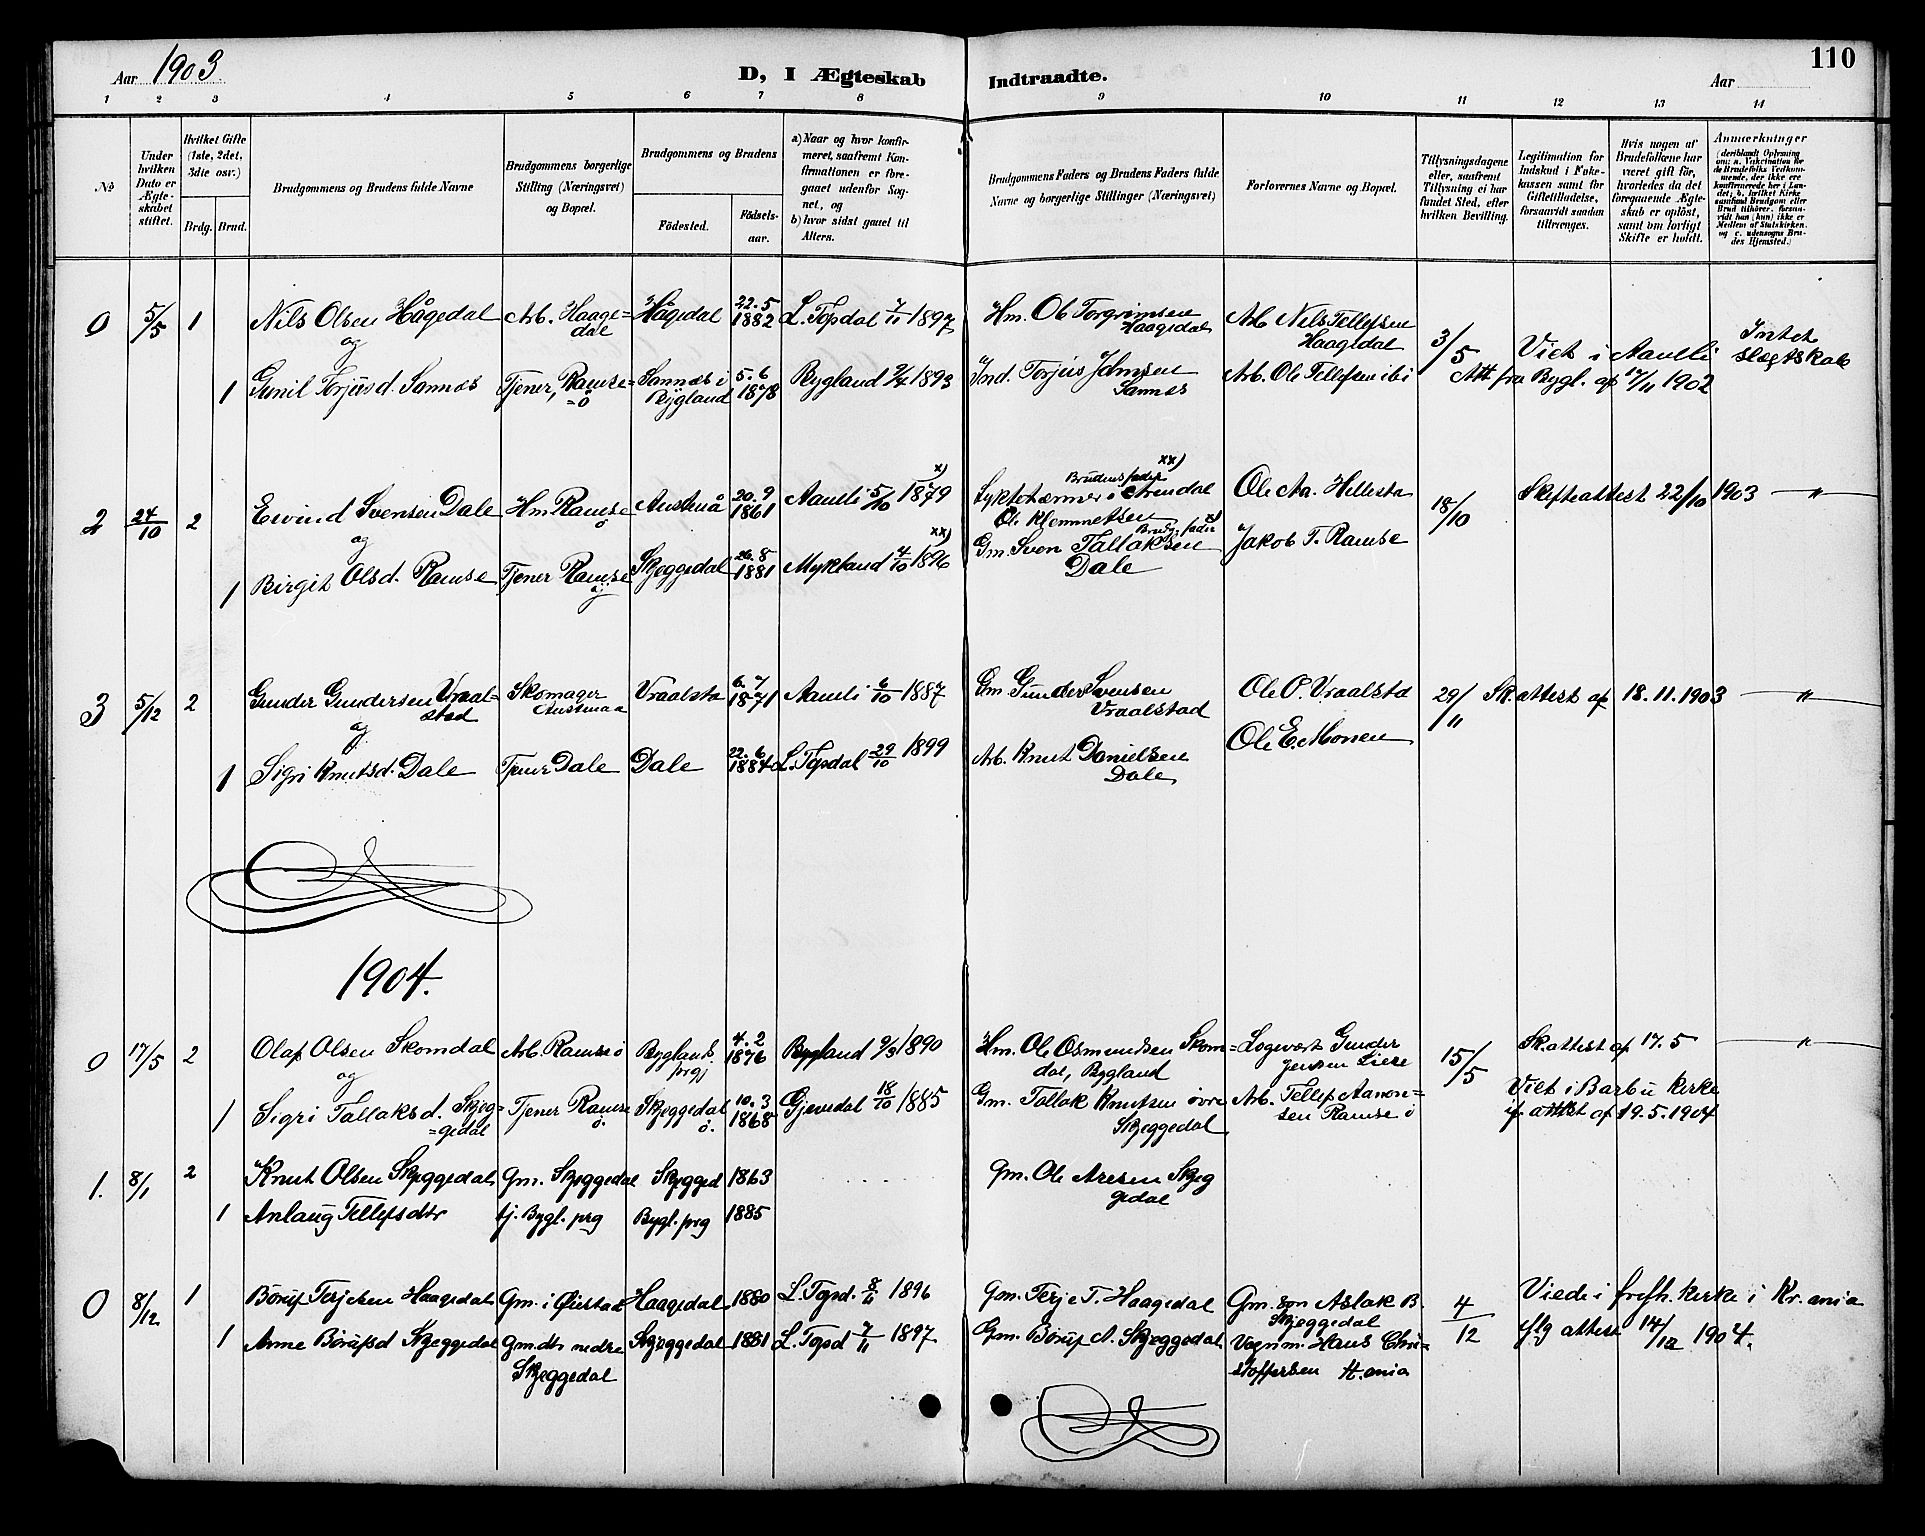 Aar 1903.
D, I Ægteskab Indtraadte.
Aar
110
1 2 3 4 5 6 7 8 9 10 11 12 13 14
No
Under hvilken Dato er Ægteskabet stiftet.
Hvilket Gifte (1ste, 2det, 3die osv.)
Brdg. Brud.
Brudgommens og Brudens fulde Navne
Brudgommens borgerlige Stilling (Næringsvei) og Bopæl.
Brudgommens og Brudens
Födested.
Födselsaar.
a) Naar og hvor konfirmeret, saafremt Konfirmationen er foregaaet udenfor Sognet, og
b) hvor sidst gaaet til Alters.
Brudgommens Faders og Brudens Faders fulde Navne og borgerlige Stillinger (Næringsvei)
Forlovernes Navne og Bopæl.
Tillysningsdagene eller, saafremt Tillysning ei har fundet Sted, efter hvilken Bevilling.
Legitimation for Indskud i Enkekassen samt for Giftetilladelse, forsaavidt saadan tiltrænges.
Hvis nogen af Brudefolkene har været gift før, hvorledes da det foregaaende Ægteskab er opløst, samt om lovligt Skifte er holdt.
Anmerkninger
0 5/5 1 Nils Olsen Hågedal Arb. Haage=dal Hågedal 22.5 1882 L. Topsdal 7/11 1897 Hm. Ole Torgrimsen Haagedal Arb Nils Tellefsen Haagedal 3/5 Viet i Aamli Intet slægtskab
og
1 Gunil Torjusd. Sannes Tjener, Ramse=ö Sannes i Bygland 5.6 1878 Bygland 9/4 1893 Ind. Torjus Jonsen Sannes Arb. Ole Tellefsen ibi Att fra Bygl. af 17/11 1902
2 24/10 2 Eivind Svensen Dale Hm. Ramse ö Austenå 20.9 1861 Aamli 5/10 1879 x) Brudens fader xx) Lyktetænner i Arendal Ole Klemmetsen Ole Aa. Hillesta 18/10 Skifteattest 22/10 1903 — " —
og
1 Birgit Olsd. Ramse Tjener Ramse ö Skjeggedal 26.8 1881 Mykland 4/10 1896 xx) Brudg. fader x) Gm. Sven Tallaksen Dale Jakob T. Ramse
3 5/12 2 Gunder Gundersen Vraal=stad Skomager Austenaa Vraalsta 6.7 1871 Aamli 6/10 1887 Gm. Gunder Svensen Vraalstad Ole O. Vraalstad 29/11 Sk. attest af 18.11.1903 — " —
og
1 Sigri Knutsd. Dale Tjener Dale Dale 22.6 1884 L. Topdal 29/10 1899 Arb. Knut Danielsen Dale Ole E. Monen
1904.
0 17/5 2 Olaf Olsen Skomdal Arb. Ramse ö Byglands prgj 4.2 1876 Bygland 9/3 1890 Hm. Ole Osmundsen Skom=dal, Bygland Logevært Gunder Jensen Liene 15/5 Sk. attest af 17.5 — " —
og
1 Sigri Tallaksd. Skjeg=gedal Tjener Ramse ö. Skjeggedal ö. 10.3 1868 Gjevedal 18/10 1885 Gm. Tallak Knutsen övre Skjeggedal Arb. Tellef Aanon=sen Ramse ö Viet i Barbu Kirke attest af 19.5.1904
1. 8/1 2 Knut Olsen Skjeggedal Gm. Skjeggedal Skjegged 1863 . . . . . . Gm. Ole Aresen Skjeg gedal
1 Anlaug Tellefsdtr tj. Bygl. prg Bygl. prg 1885
0 8/12 1 Böruf Terjesen Haagedal Gm. i Øiestad Haagedal 1880 L. Topsd. 8/11 1896 Gm. Terje T. Haagedal Gm. søn Aslak B. Skjeggedal 4/12 Viede i frelh. kirke i Kr.ania
1 Anne Börufsd Skjeggedal Gm.dtr nedre Skjeggedal Skjeggedal 1881 L. Topsd 7/11 1897 Gm. Böruf A. Skjeggedal Vognm. Hans Chri=stoffersen Kr.ania iflg attest 14/12 1904.